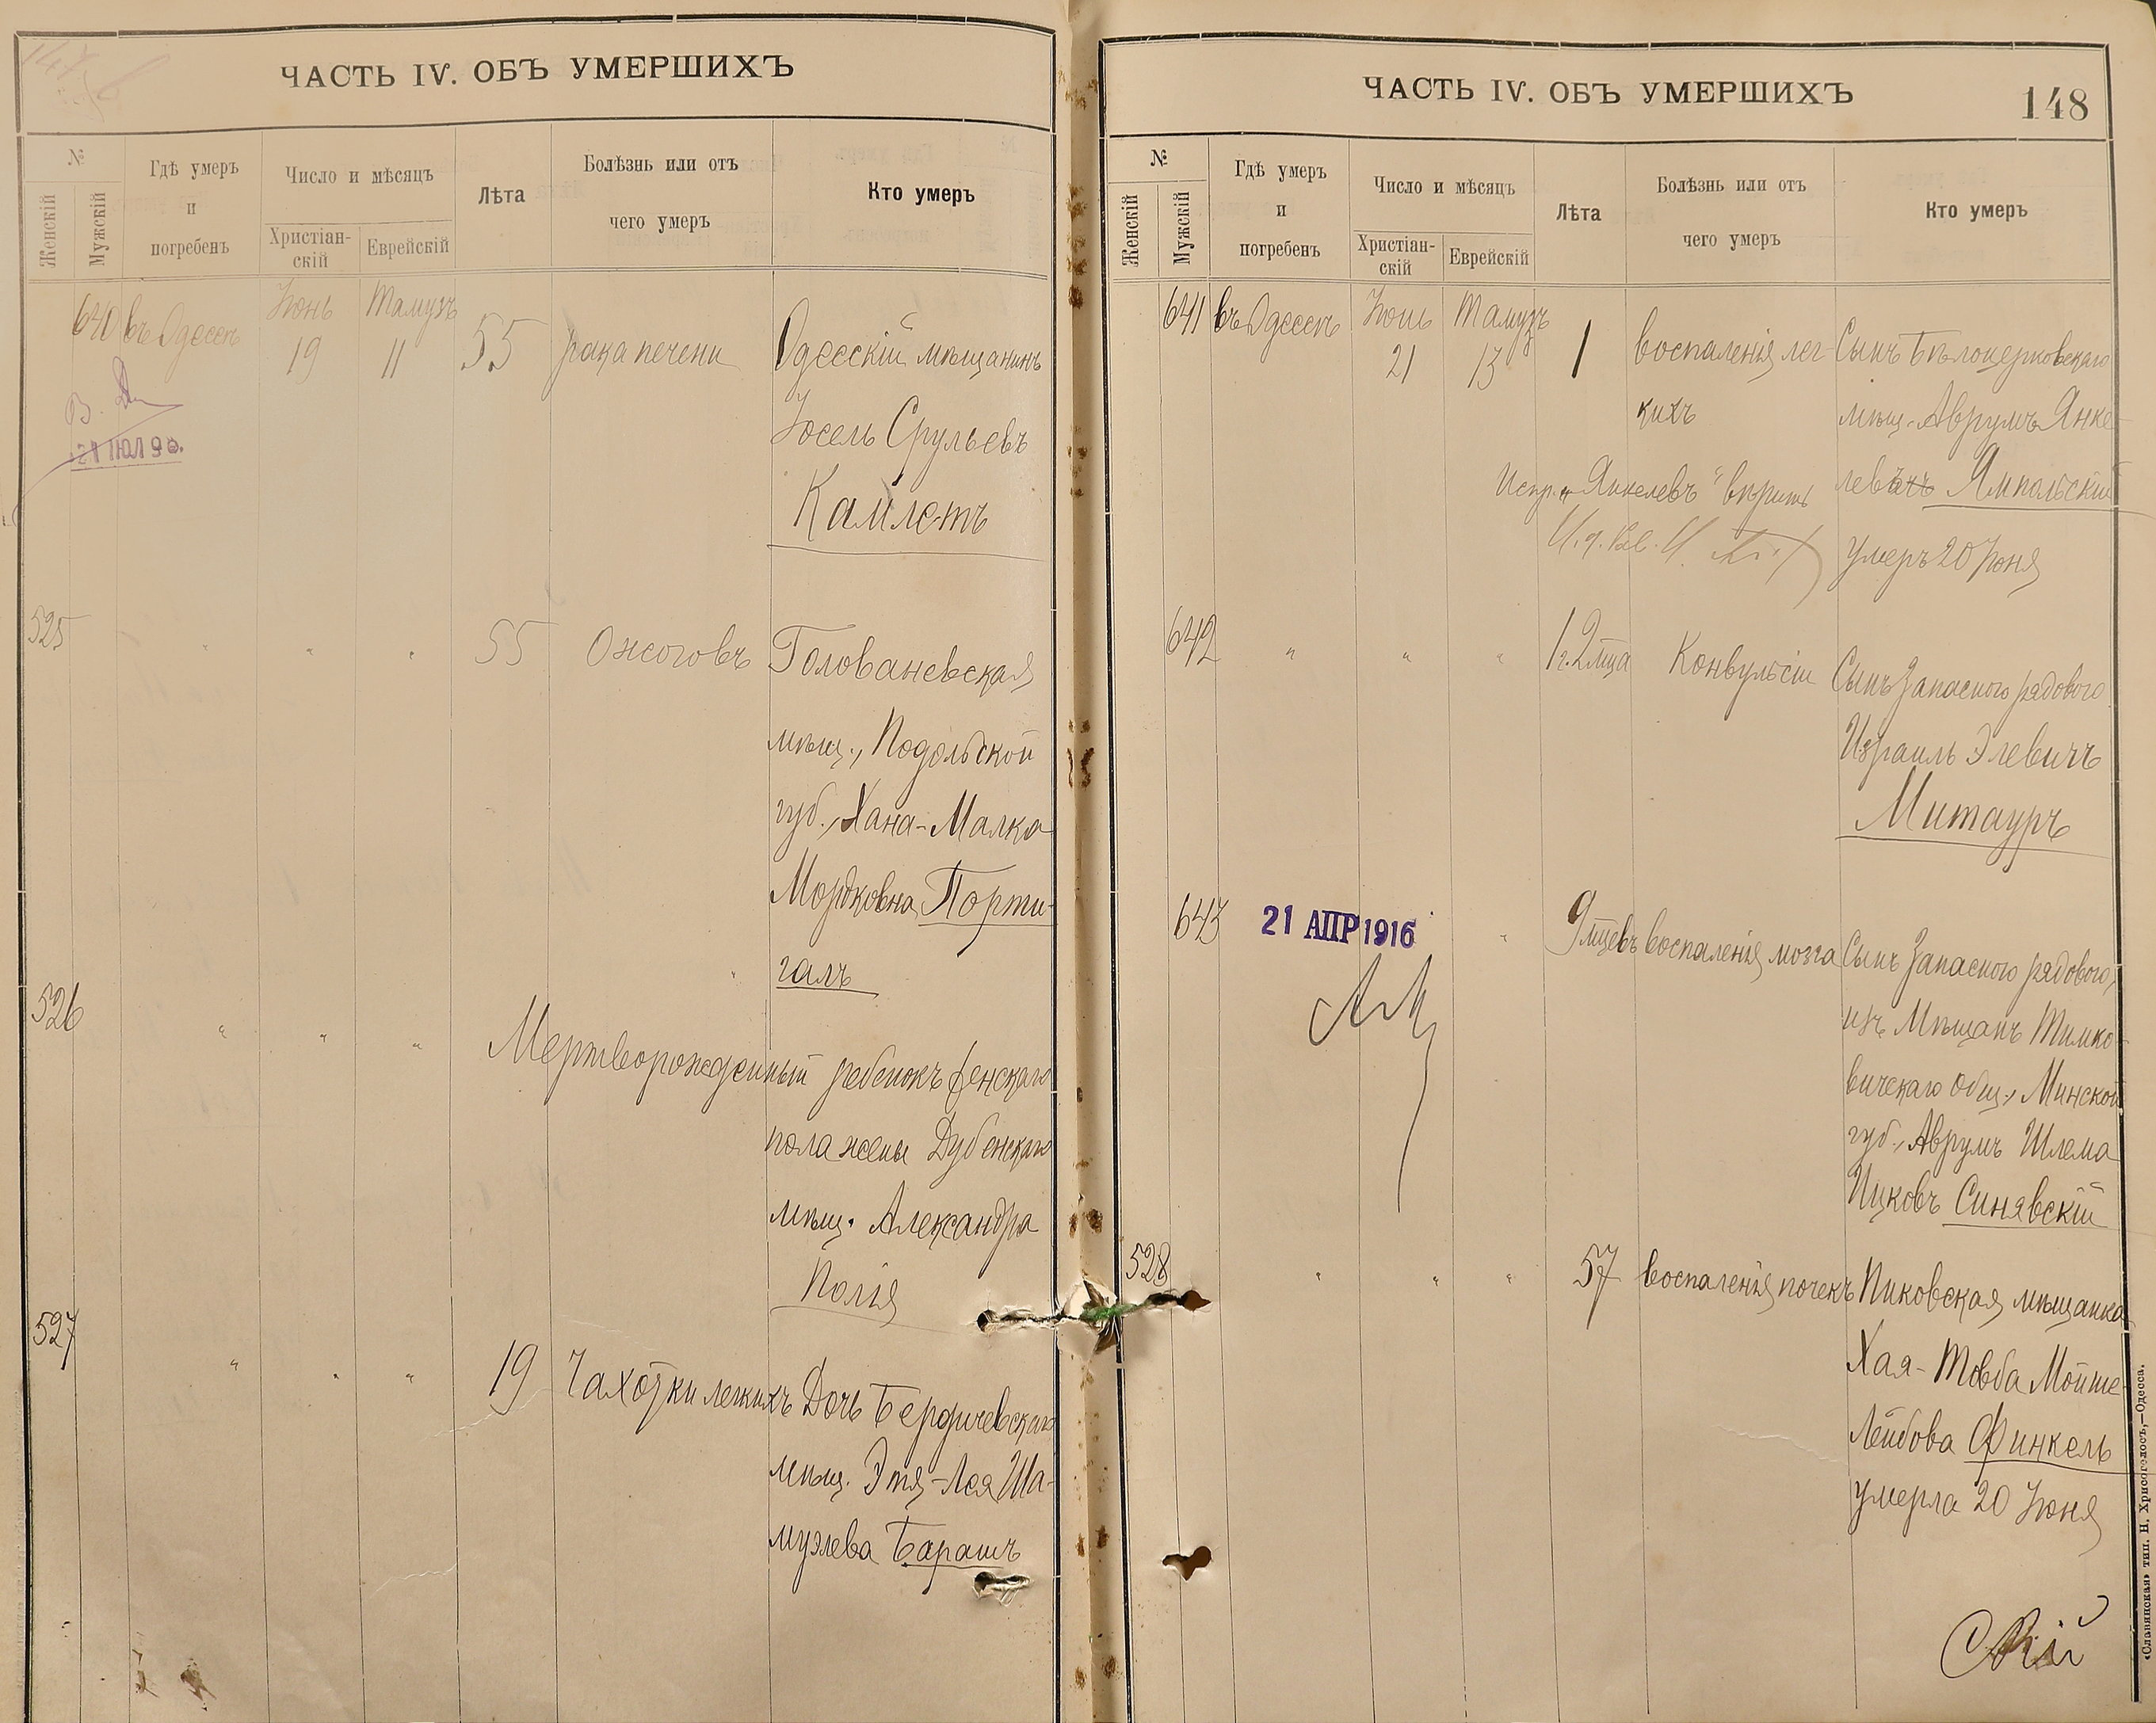 ЧАСТЬ IV. ОБЪ УМЕРШИХЪ
№
Женскій
Мужскій
Гдѣ умеръ
и
погребенъ
Число и мѣсяцъ
Христіан-
скій
Еврейскій
Лѣта
Болѣзнь или отъ
чего умеръ
Кто умеръ
640 въ Одессѣ Іюнь Тамузъ
19 11 55 рака печени Одесскій мѣщанинъ
Іосель Срульевъ
Камлетъ
21 ІЮЛ 9
525 " " " 55 Ожоговъ Голованевская
мѣщ., Подольской
губ., Хана-Малка
Мордковна Порти-
галъ
526 " " " Мертворожденный ребенокъ женскаго
пола жены Дубенскаго
мѣщ. Александра
Полія
527 " " " 19 Чахотки легкихъ Дочь Бердичевскаго
мѣщ. Этя-Лея Ша-
муэлева Барашъ
ЧАСТЬ IV. ОБЪ УМЕРШИХЪ
148
№
Женскій
Мужскій
Гдѣ умеръ
и
погребенъ
Число и мѣсяцъ
Христіан-
скій
Еврейскій
Лѣта
Болѣзнь или отъ
чего умеръ
Кто умеръ
641 въ Одессѣ Іюнь Тамузъ
21 13 1 воспаленія лег- Сынъ Бѣлоцерковскаго
кихъ мѣщ. Аврумъ Янке-
левъ Ямпольскій
Испр. „Янкелевъ“ вѣрить
умеръ 20 Іюня
642 " " " 1 г. 2 мца Конвульсіи Сынъ Запасного рядового
Израиль Элевичъ
Митауръ
643 21 АПР 1916 " 9 мцевъ воспаленія мозга Сынъ Запасного рядового,
изъ Мѣщанъ Тимко-
вичскаго Общ., Минской
губ., Аврумъ Шлема
Ицковъ Синявскій
528 " " " 57 воспаленія почекъ Пиковская мѣщанка
Хая-Товба Мойше-
Лейбова Финкель
умерла 20 Іюня
скій
«Славянская» тип. Н. Хрисогелосъ,—Одесса.